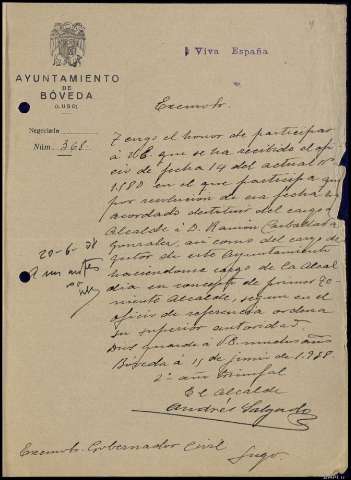 ¡Viva España
AYUNTAMIENTO
DE
BÓVEDA
(LUGO)
Negociado
Núm. 368
Excmo. Sr.
Tengo el honor de participar
á V.E. que se ha recibido el ofi-
cio de fecha 14 del actual nº
1.580 en el que participa que
por resolucion de esa fecha ha
acordado destituir del cargo
Alcalde á D. Ramón Carballo
Gonzalez, asi como del cargo de
gestor de este Ayuntamiento
haciendome cargo de la Alcal
dia en concepto de primer Te-
niente Alcalde, segun en el
oficio de referencia ordena
su superior autoridad.
Dios guarde á V.E. muchos años
Bóveda á 15 de junio de 1.938
2º año Triunfal
El Alcalde
Andrés Salgado
20-6-38
A sus antes
Excmo. Sr. Gobernador Civil
Lugo.